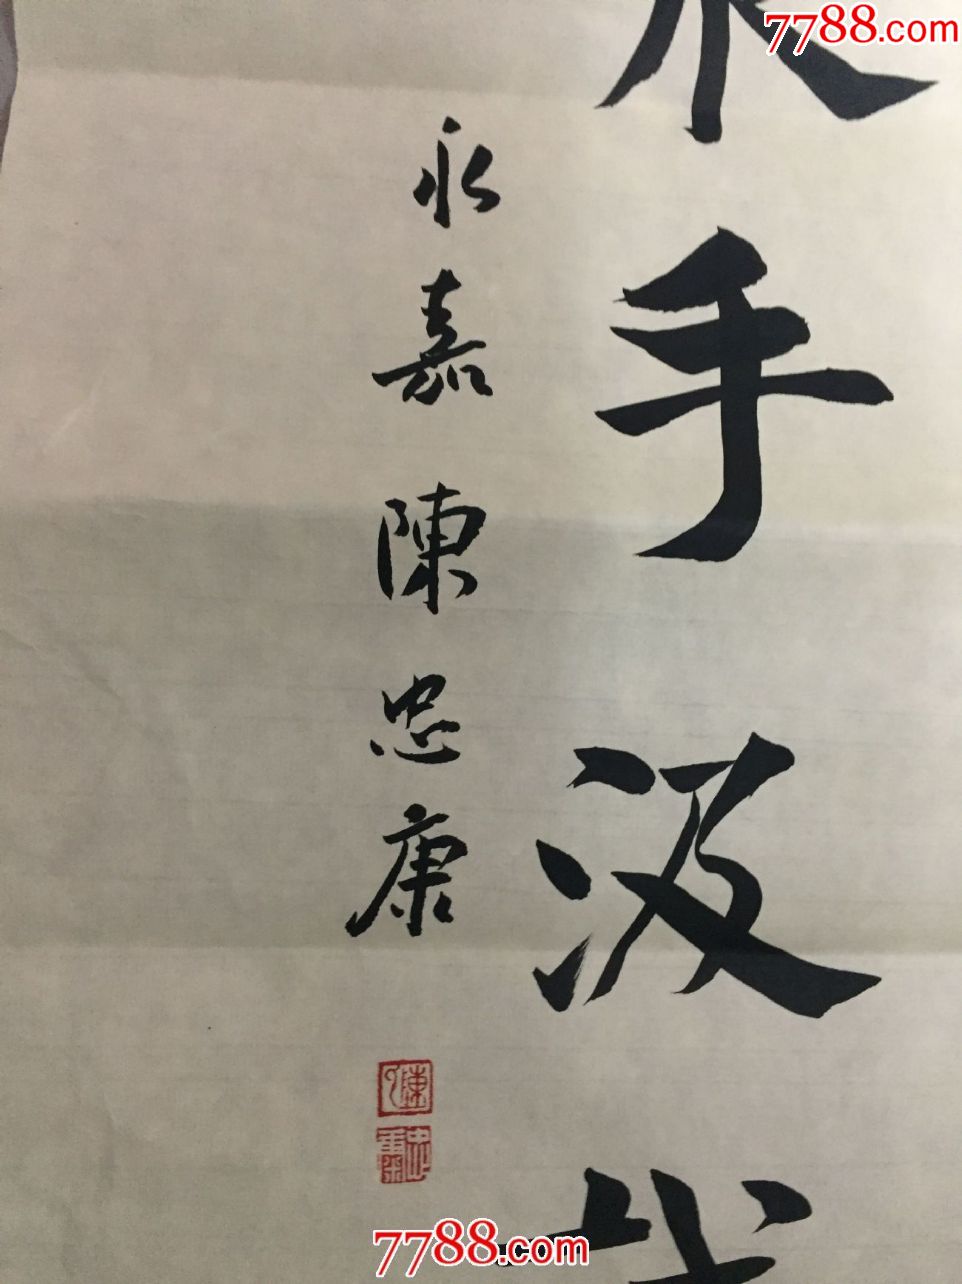 7788.com
手汲
永嘉陳忠康
陳
忠康
7788.com